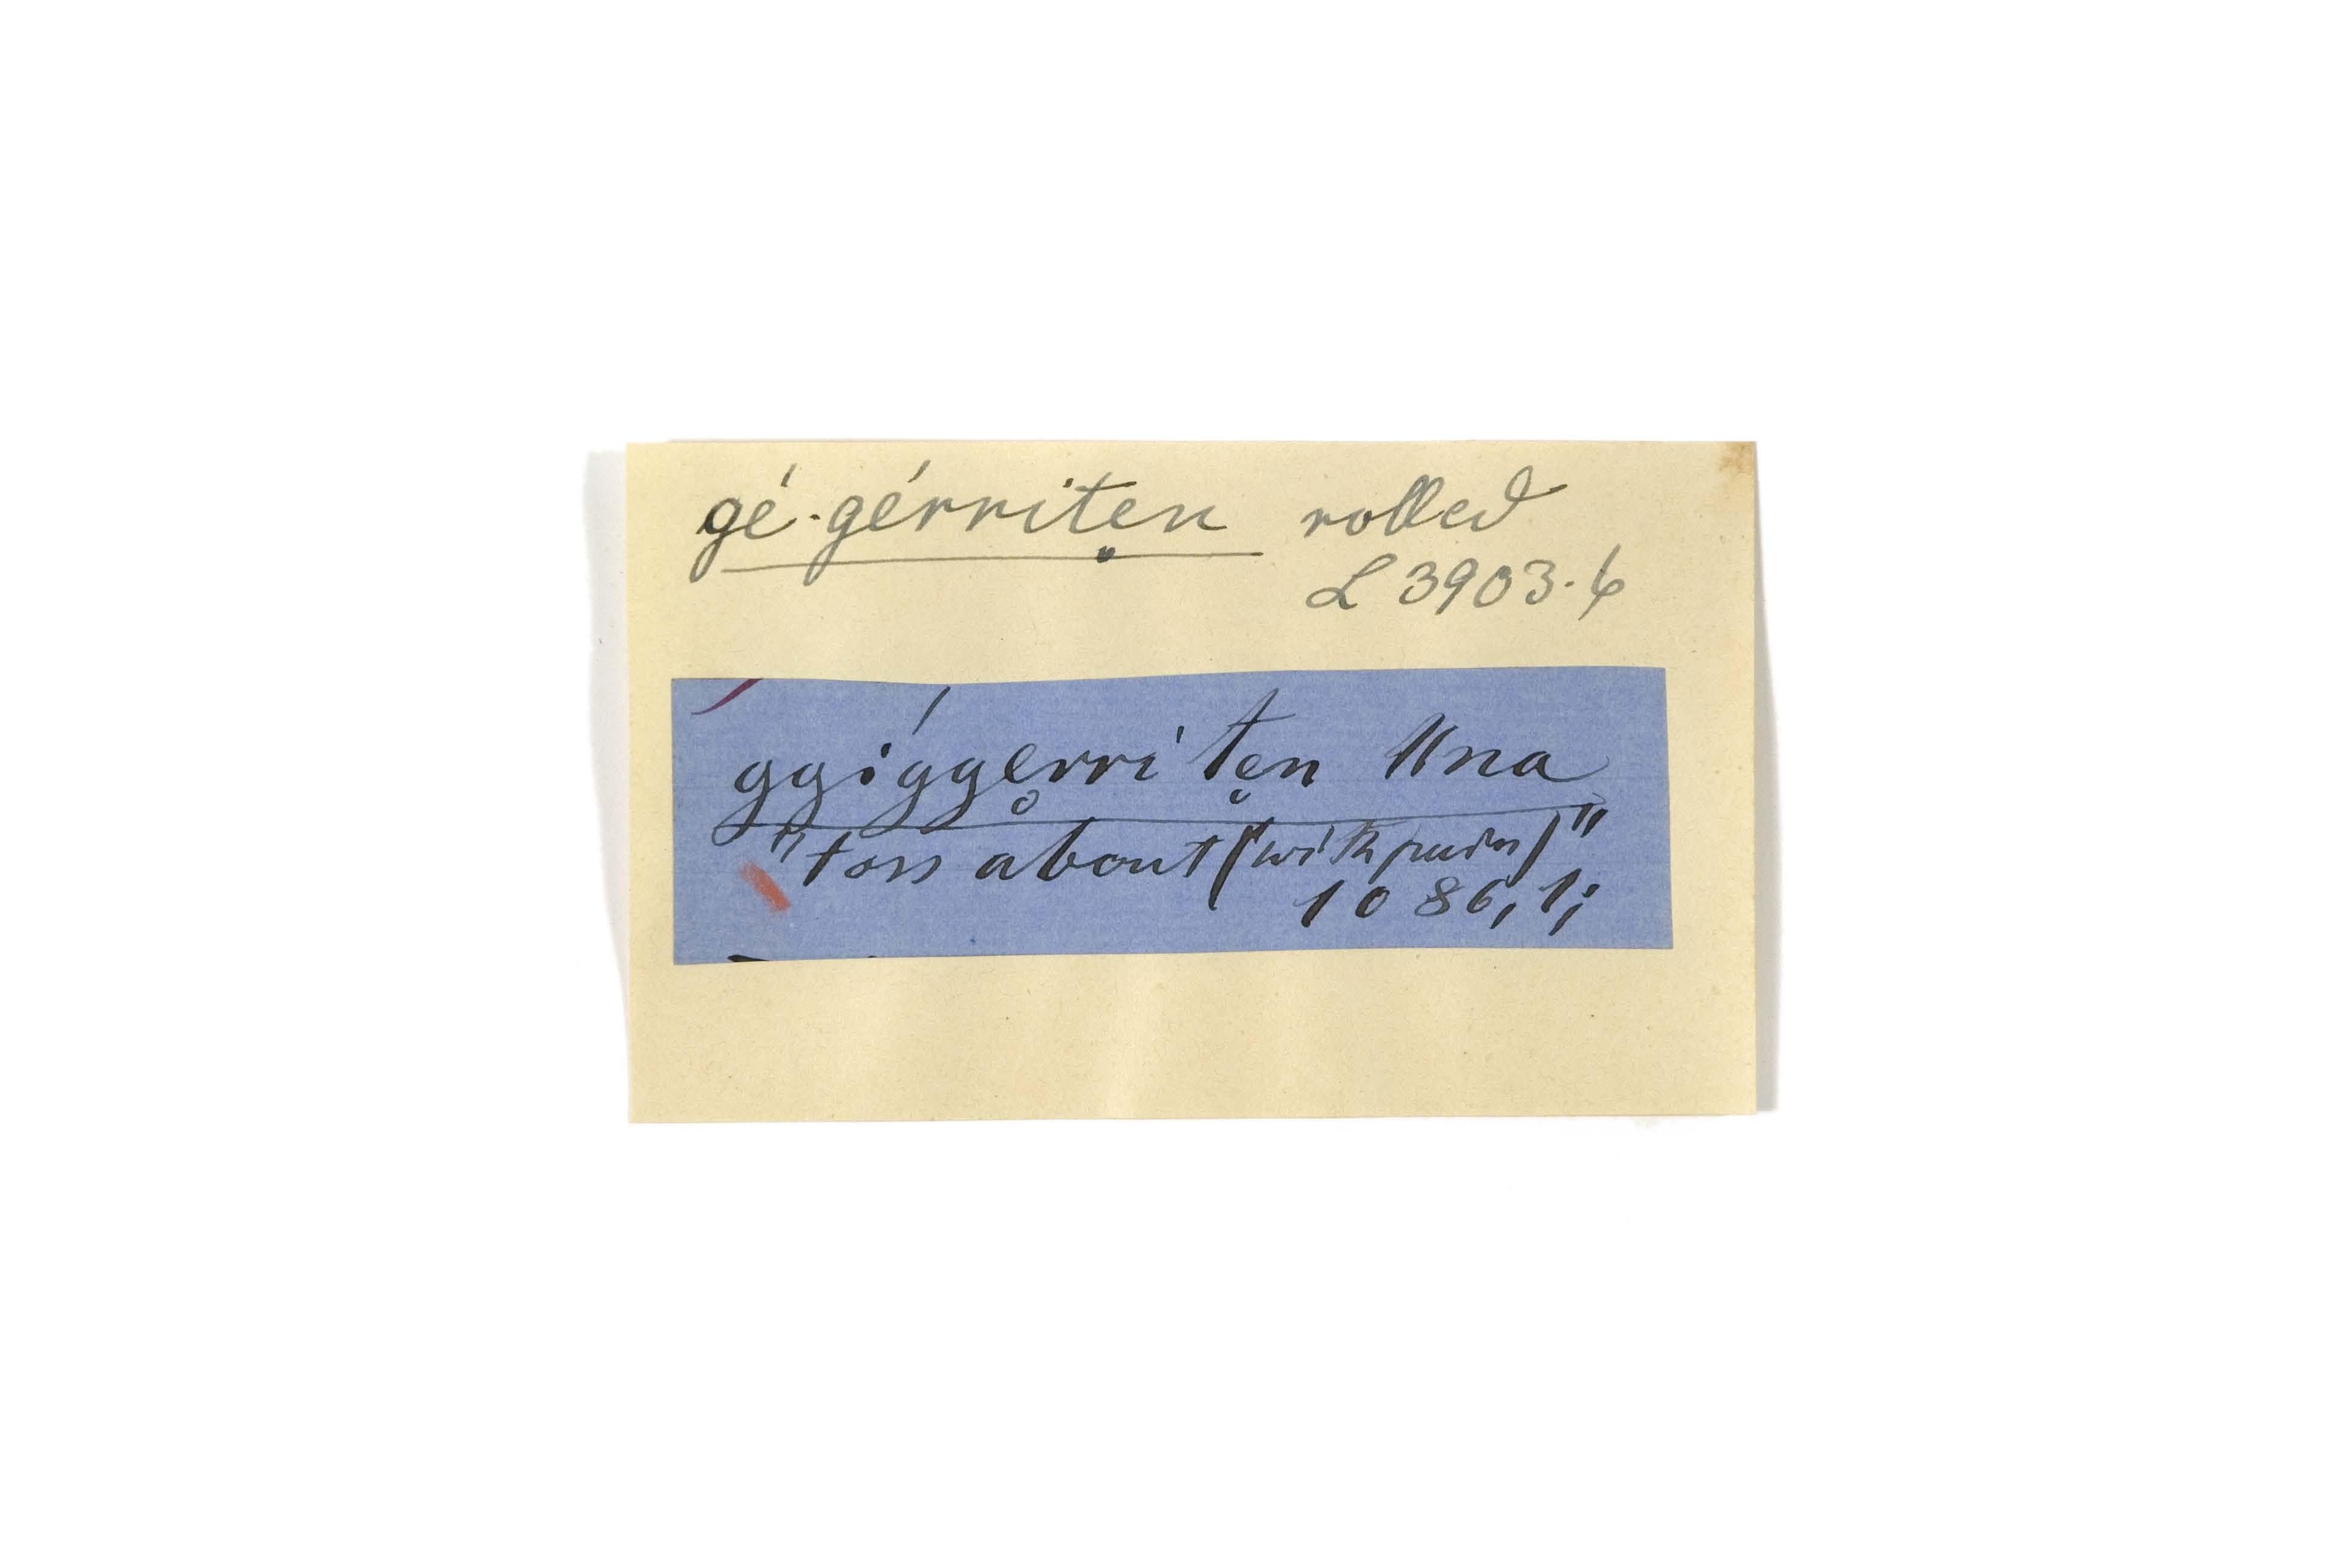 gé·gérriten̥ rolled
L 3903.6
ggígge̥rri te̥n ǁna
"toss about (with pain)"
1086,1;